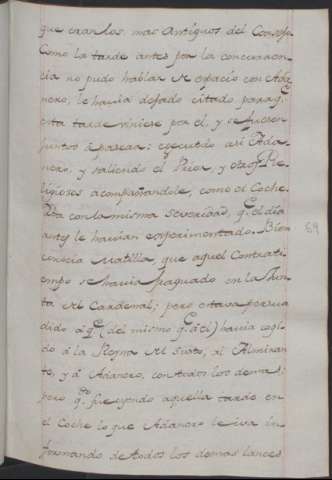 que eran los mas antiguos del Consejo.
Como la tarde antes por la concurren-
cia no pudo hablar de espacio con Ada-
nero, le havia dejado citado para q.e
esta tarde viniese por el, y se fuesen
juntos à pasear: egecutólo asi Ada-
nero, y saliendo el Prior, y otros Re-
ligiosos acompañandole, como el Coche
iba con la misma severidad, q.e el dia
antes le havian experimentado. Bien
conocia Matilla, que aquel Contrati-
empo se havia fraguado en la Jun-
ta del Cardenal; pero estava persua-
dido à q.e (del mismo q.e à el) havia cogi-
do à la Reyna de susto, al Almiran-
te, y à Adanero, con todos los demas;
pero q.do fue oyendo aquella tarde en
el Coche lo que Adanero le iva in-
formando de todos los demas lances
69